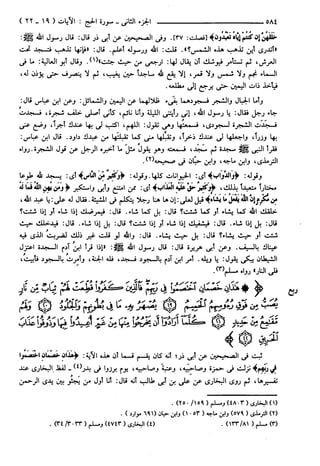 ٥٨٤ الجزء الثاني - سورة الحج: الآيات (١٩ - ٢٢)
خَلَقَهُنَّ إِن كُنتُمْ إِيَّاهُ تَعْبُدُونَ﴾ [فصلت: ٣٧]. وفي الصحيحين عن أبي ذر قال: قال رسول الله ﷺ:
«أتدري أين تذهب هذه الشمس؟». قلت: الله ورسوله أعلم. قال: «فإنها تذهب فتسجد تحت
العرش، ثم تستأمر فيوشك أن يقال لها: ارجعي من حيث جئت»(١). وقال أبو العالية: ما في
السماء نجم ولا شمس ولا قمر، إلا يقع لله ساجداً حين يغيب، ثم لا ينصرف حتى يؤذن له،
فيأخذ ذات اليمين حتى يرجع إلى مطلعه.
وأما الجبال والشجر فسجودهما بفيء ظلالهما عن اليمين والشمائل: وعن ابن عباس قال:
جاء رجل فقال: يا رسول الله، إني رأيتني الليلة وأنا نائم، كأني أصلي خلف شجرة، فسجدت
فسجدت الشجرة لسجودي، فسمعتها وهي تقول: اللهم، اكتب لي بها عندك أجراً، وضع عني
بها وزراً، واجعلها لي عندك ذخراً، وتقبلها مني كما تقبلتها من عبدك داود. قال ابن عباس:
فقرأ النبي ﷺ سجدة ثم سجد، فسمعته وهو يقول مثل ما أخبره الرجل عن قول الشجرة. رواه
الترمذي، وابن ماجه، وابن حبان في صحيحه(٢).
وقوله: ﴿وَالدَّوَابُّ﴾ أي: الحيوانات كلها. وقوله: ﴿وَكَثِيرٌ مِّنَ النَّاسِ﴾ أي: يسجد لله طوعا
مختاراً متعبداً بذلك، ﴿وَكَثِيرٌ حَقَّ عَلَيْهِ الْعَذَابُ﴾ أي: ممن امتنع وأبى واستكبر ﴿وَمَن يُهِنِ اللَّهُ فَمَا لَهُ
مِن مُّكْرِمٍ إِنَّ اللَّهَ يَفْعَلُ مَا يَشَاءُ﴾ قيل لعلي: إن ها هنا رجلاً يتكلم في المشيئة. فقال له علي: يا عبد الله،
خلقك الله كما يشاء أو كما شئت؟ قال: بل كما شاء. قال: فيمرضك إذا شاء أو إذا شئت؟
قال: بل إذا شاء. قال: فيشفيك إذا شاء أو إذا شئت؟ قال: بل إذا شاء. قال: فيدخلك حيث
شئت أو حيث يشاء؟ قال: بل حيث يشاء. قال: والله لو قلت غير ذلك لضربت الذي فيه
عيناك بالسيف. وعن أبي هريرة قال: قال رسول الله ﷺ: «إذا قرأ ابن آدم السجدة اعتزل
الشيطان يبكي يقول: يا ويله. أمر ابن آدم بالسجود فسجد، فله الجنة، وأمرت بالسجود فأبيت،
فلي النار» رواه مسلم(٣).
ربع
﴿هَٰذَانِ خَصْمَانِ اخْتَصَمُوا فِي رَبِّهِمْ فَالَّذِينَ كَفَرُوا قُطِّعَتْ لَهُمْ ثِيَابٌ مِّن نَّارٍ
يُصَبُّ مِن فَوْقِ رُءُوسِهِمُ الْحَمِيمُ ۝١٩ يُصْهَرُ بِهِ مَا فِي بُطُونِهِمْ وَالْجُلُودُ ۝٢٠ وَلَهُم
مَّقَامِعُ مِنْ حَدِيدٍ ۝٢١ كُلَّمَا أَرَادُوا أَن يَخْرُجُوا مِنْهَا مِنْ غَمٍّ أُعِيدُوا فِيهَا وَذُوقُوا عَذَابَ
الْحَرِيقِ ۝٢٢﴾
ثبت في الصحيحين عن أبي ذر؛ أنه كان يقسم قسما أن هذه الآية: ﴿هَٰذَانِ خَصْمَانِ اخْتَصَمُوا
فِي رَبِّهِمْ﴾ نزلت في حمزة وصاحبيه، وعتبة وصاحبيه، يوم برزوا في بدر(٤) - لفظ البخاري عند
تفسيرها، ثم روى البخاري عن علي بن أبي طالب أنه قال: أنا أول من يجثو بين يدي الرحمن
(١) البخاري (٤٨٠٣) ومسلم (١٥٩/ ٢٥٠).
(٢) الترمذي (٥٧٩) وابن ماجه (١٠٥٣) وابن حبان (٦٩١ موارد).
(٣) مسلم (٨١/ ١٣٣). (٤) البخاري (٤٧٤٣) ومسلم (٣٠٣٣/ ٣٤).